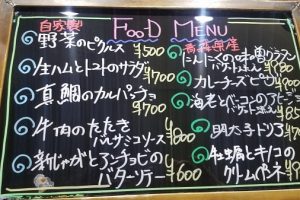 FOOD MENU
自家製
野菜のピクルス ¥500
生ハムとトマトのサラダ ¥700
真鯛のカルパッチョ ¥700
牛肉のたたき
バルサミコソース ¥800
新じゃがとアンチョビの
バターソテー ¥600
青森県産
にんにくの
カレーチーズピザ
海老とベーコンの
明太子ドリア
牡蠣とキノコの
クリームペンネ